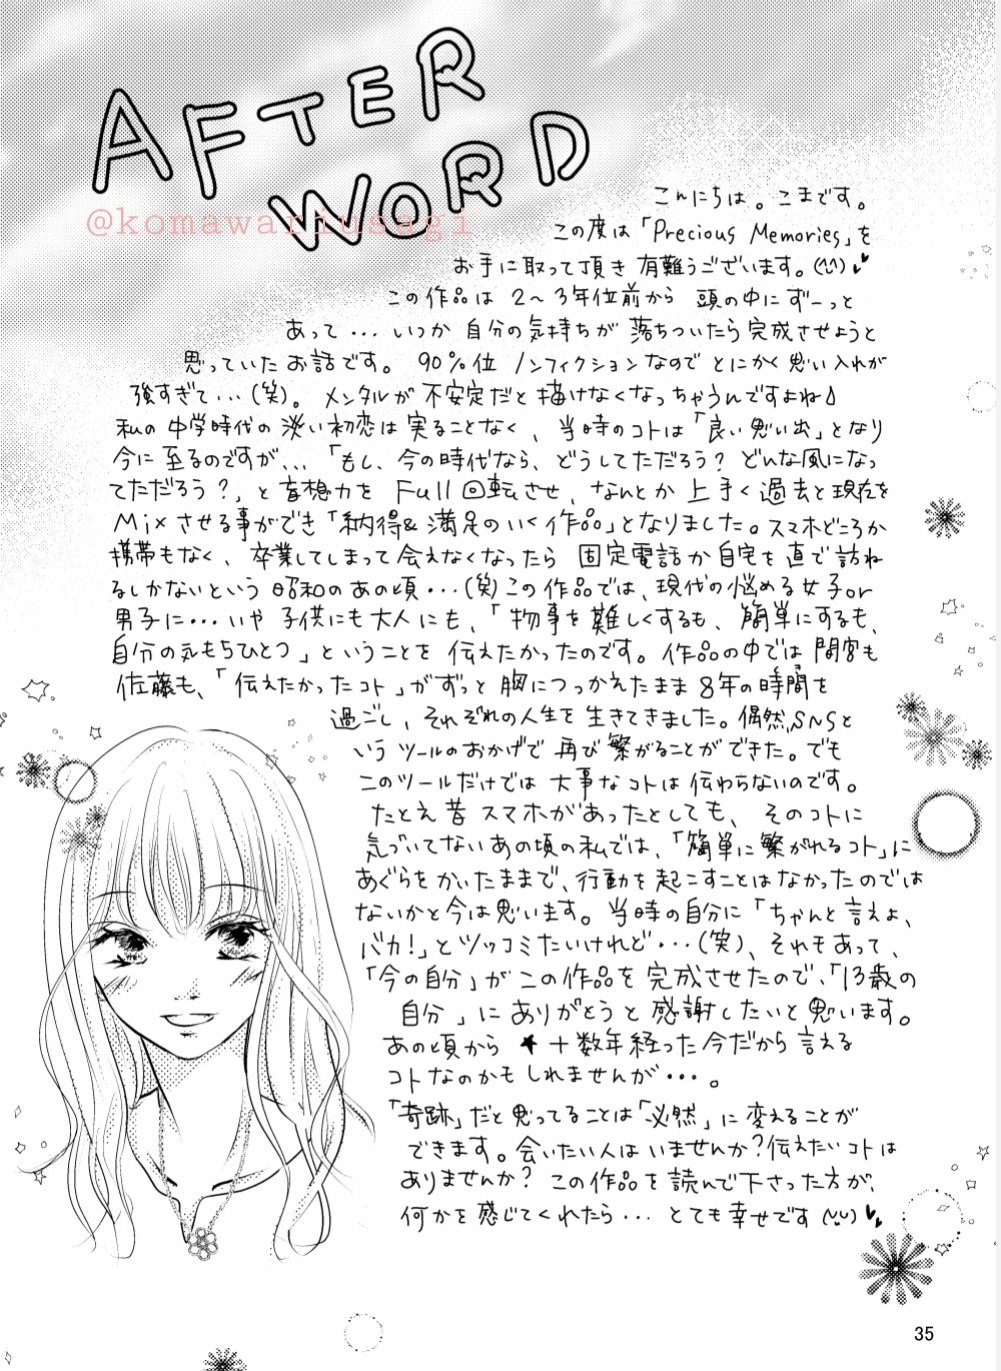 AFTER
WORD
@komawariusagi
こんにちは。こまです。
この度は「Precious Memories」を
お手に取って頂き 有難うございます。(^^)
この作品は 2〜3年位前から 頭の中にずーっと
あって... いつか 自分の気持ちが 落ちついたら完成させようと
思っていたお話です。 90%位 ノンフィクションなので とにかく思い入れが
強すぎて...(笑)。 メンタルが 不安定だと描けなくなっちゃうんですよね
私の中学時代の 淡い初恋は実ることなく、当時のコトは「良い思い出」となり
今に至るのですが...「もし、今の時代なら、どうしてただろう? どんな風になっ
てただろう?」と妄想力を Full回転させ、なんとか 上手く過去と現在を
Mixさせる事ができ「納得&満足のいく作品」となりました。スマホどころか
携帯もなく、卒業してしまって会えなくなったら 固定電話か自宅を直で訪ね
るしかないという 昭和のあの頃...(笑)この作品では、現代の悩める女子or
男子に...いや 子供にも大人にも、「物事を難しくするも、簡単にするも、
自分の気もちひとつ」ということを 伝えたかったのです。作品の中では 間宮も
佐藤も、「伝えたかったコト」がずっと 胸につっかえたまま 8年の時間を
過ごし、それぞれの人生を 生きてきました。偶然、SNSと
いう ツールのおかげで 再び繋がることができた。でも
このツールだけでは 大事なコトは伝わらないのです。
たとえ昔 スマホがあったとしても、 そのコトに
気づいてないあの頃の私では、「簡単に繋がれるコト」に
あぐらをかいたままで、行動を起こすことはなかったのでは
ないかと今は思います。当時の自分に「ちゃんと言えよ、
バカ!」とツッコミたいけれど...(笑)、それもあって、
「今の自分」がこの作品を完成させたので、「13歳の
自分」にありがとうと感謝したいと思います。
あの頃から ★十数年経った今だから言える
コトなのかもしれませんが...。
「奇跡」だと思ってることは「必然」に変えることが
できます。会いたい人はいませんか?伝えたいコトは
ありませんか? この作品を読んで下さった方が、
何かを感じてくれたら... とても幸せです(^^)
35